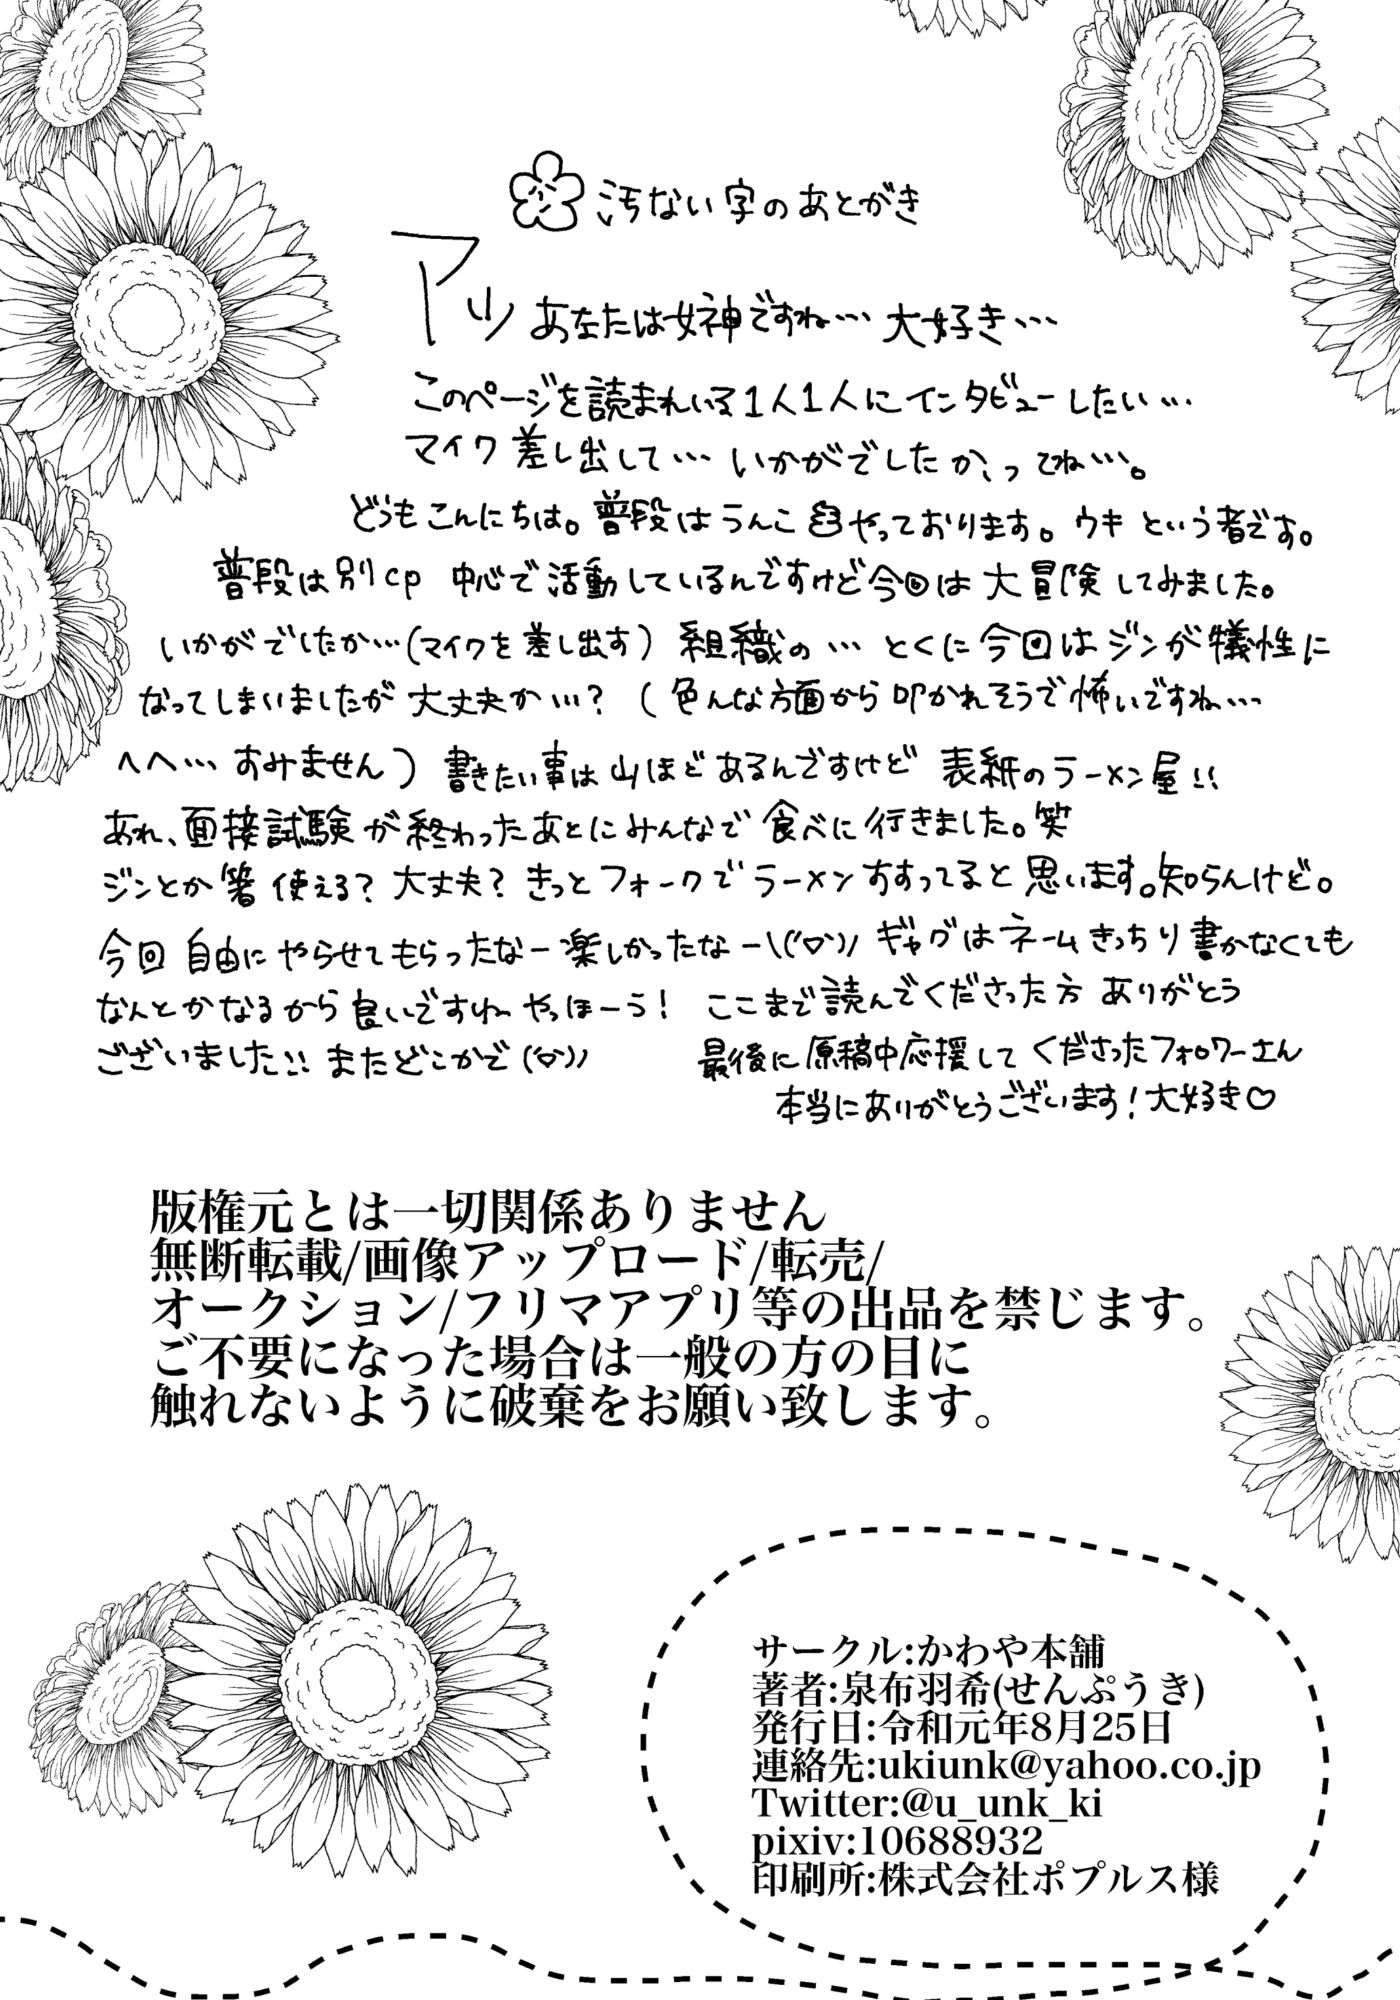 汚ない字のあとがき
アッ あなたは女神ですね… 大好き…
このページを読まれいる1人1人にインタビューしたい…
マイク差し出して… いかがでしたか、ってね…。
どうもこんにちは。普段はうんこやっております。ウキという者です。
普段は別cp 中心で活動しているんですけど今回は大冒険してみました。
いかがでしたか…(マイクを差し出す) 組織の… とくに今回はジンが犠性に
なってしまいましたが大丈夫か…? (色んな方面から叩かれそうで怖いですね…
へへ… すみません) 書きたい事は山ほどあるんですけど 表紙のラーメン屋!!
あれ、面接試験が終わったあとにみんなで食べに行きました。笑
ジンとか箸使える? 大丈夫? きっとフォークでラーメンすすってると思います。知らんけど。
今回自由にやらせてもらったなー楽しかったなー\('▽')/ ギャグはネームきっちり書かなくても
なんとかなるから良いですね〜やっほーう! ここまで読んでくださった方 ありがとう
ございました!! またどこかで('▽')/
最後に原稿中応援してくださったフォロワーさん
本当にありがとうございます! 大好き♡
版権元とは一切関係ありません
無断転載/画像アップロード/転売/
オークション/フリマアプリ等の出品を禁じます。
ご不要になった場合は一般の方の目に
触れないように破棄をお願い致します。
サークル:かわや本舗
著者:泉布羽希(せんぷうき)
発行日:令和元年8月25日
連絡先:ukiunk@yahoo.co.jp
Twitter:@u_unk_ki
pixiv:10688932
印刷所:株式会社ポプルス様